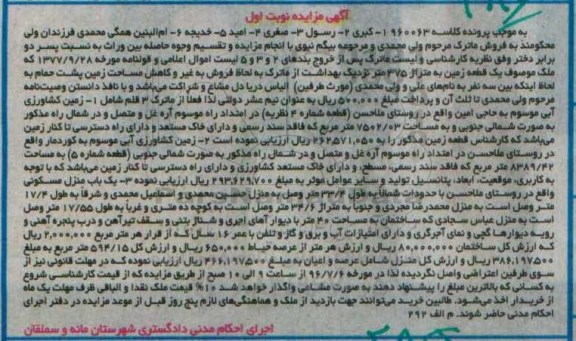 آگهی مزایده نوبت اول
به موجب پرونده کلاسه ۹۶۰۰۶۳ ۱- کبری ۲- رسول ۳- صغری ۴- امید ۵- خدیجه ۶- ام‌البنین همگی محمدی فرزندان ولی
محکومند به فروش ماترک مرحوم ولی محمدی و مرحومه بیگم نبوی با انجام مزایده و تقسیم وجوه حاصله بین وراث به نسبت پسر دو
برابر دختر وفق نظریه کارشناسی و لیست ماترک پس از خروج بندهای ۲ و ۳ و ۵ لیست اموال اعلامی و قولنامه مورخه ۱۳۷۷/۹/۲۸
ملک موصوف یک قطعه زمین به متراژ ۳۷۵ متر نزدیک بهداشت از ماترک به لحاظ فروش به غیر و کاهش مساحت زمین پشت حمام به
لحاظ اینکه بین سه نفر به نام‌های علی و ولی محمدی (مورث طرفین) الیاس دریا دل مشاع و شراکت می‌باشد و با نافذ دانستن وصیت‌نامه
مرحوم ولی محمدی تا ثلث آن و پرداخت مبلغ ۵۰۰,۰۰۰ ریال به عنوان نیم عشر دولتی لذا فعلا از ماترک ۳ قلم شامل ۱- زمین کشاورزی
آبی موسوم به حاجی امین واقع در روستای ملاحسن (قطعه شماره ۴ نظریه) در امتداد راه موسوم آره غل و متصل و در شمال راه مذکور
به صورت شمالی جنوبی و به مساحت ۷۵۰۲/۰۳ متر مربع که فاقد سند رسمی و دارای خاک مستعد و دارای راه دسترسی تا کنار زمین
می‌باشد که کارشناس قطعه زمین مذکور را به ۲۶۲۵۷۱,۰۵۰ ریال ارزیابی نموده است ۲- زمین کشاورزی آبی موسوم به کوردمار واقع
در روستای ملاحسن در امتداد راه موسوم آره غل و متصل و در شمال راه مذکور به صورت شمالی جنوبی (قطعه شماره ۵) به مساحت
۸۳۸۹/۴۲ متر مربع که فاقد سند رسمی، مسطح، و دارای خاک مستعد کشاورزی و دارای راه دسترسی تا کنار زمین می‌باشد که با توجه
به کاربری، موقعیت، ابعاد، پتانسیل تولید و سایر عوامل موثر به مبلغ ۲۹۳۶۲۹۷۰۰ ریال ارزیابی نموده ۳- یک باب منزل مسکونی
واقع در روستای ملاحسن با حدودات شمالا به طول ۳۳/۴ متر وصل به منزل حسین محمدی و اسماعیل محمدی و شرقا به طول ۱۷/۴
متر وصل است به منزل محمدرضا مجردی و جنوبا به متراژ ۳۴/۶ متر وصل است به کوچه ده متری و غربا به طول ۱۷/۵۵ متر وصل
است به منزل عباس سجادی که ساختمان به مساحت ۴۰ متر با دیوار آهای آجری و شناژ بتنی و سقف تیرآهن و درب پنجره آهنی و
رویه دیوارها گچی و نمای آجرگری و دارای امتیازات آب و برق و گاز و تلفن با عمر ۱۶ سال که از قرار هر متر مربع ۲,۰۰۰,۰۰۰ ریال
که ارزش کل ساختمان ۸۰,۰۰۰,۰۰۰ ریال و ارزش هر متر از عرصه حیاط ۶۵۰,۰۰۰ ریال و ارزش کل ۵۹۴/۱۵ متر مربع به مبلغ
۳۸۶,۱۹۷۵۰۰ ریال و ارزش کل منزل شامل عرصه و اعیان به مبلغ ۴۶۶,۱۹۷۵۰۰ ریال ارزیابی نموده که در مهلت قانونی نیز از
سوی طرفین اعتراضی واصل نگردیده لذا در مورخه ۹۶/۷/۶ از ساعت ۹ الی ۱۰ صبح از طریق مزایده که از قیمت کارشناسی شروع
به کسانی که بالاترین مبلغ را پیشنهاد دهند به صورت مشاعی واگذار خواهد شد ۱۰% قیمت ملک نقدا و الباقی ظرف مهلت یک ماه
از خریدار اخذ می‌شود. طالبین خرید می‌توانند جهت بازدید از ملک و هماهنگی‌های لازم پنج روز قبل از موعد مزایده در دفتر اجرای
احکام مدنی حاضر شوند. م الف ۲۹۲
اجرای احکام مدنی دادگستری شهرستان مانه و سملقان